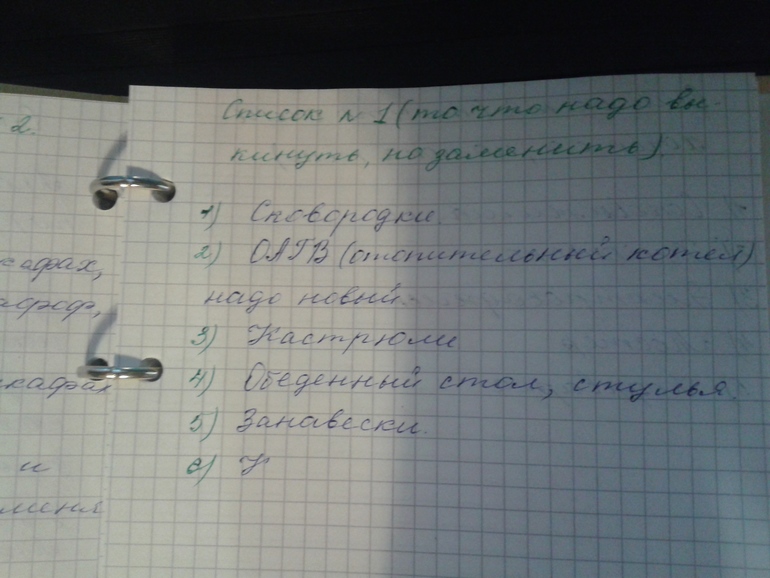 2.
Список № 1 (то что надо вы-
кинуть, но заменить).
1) Сковородки.
2) ОАГВ (отопительный котёл)
надо новый.
3) Кастрюли
4) Обеденный стол, стулья.
5) Занавески.
6) У
и